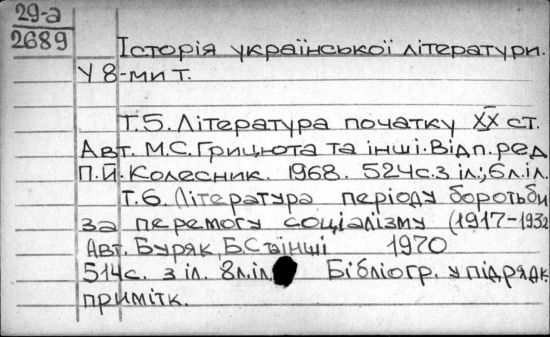 29-а
2689
Історія української літератури.
У 8-ми т.
Т.5. Література початку XX ст.
Авт. М.С. Грицюта та інші. Відп. ред
П.Й. Колесник. 1968. 524с. з іл.; 6л. іл.
Т.6. Література періоду боротьби
за перемогу соціалізму (1917-1932
Авт. Буряк, Б.С та інші 1970
514с. з іл. 8л. іл. Бібліогр. у підрядк.
примітк.